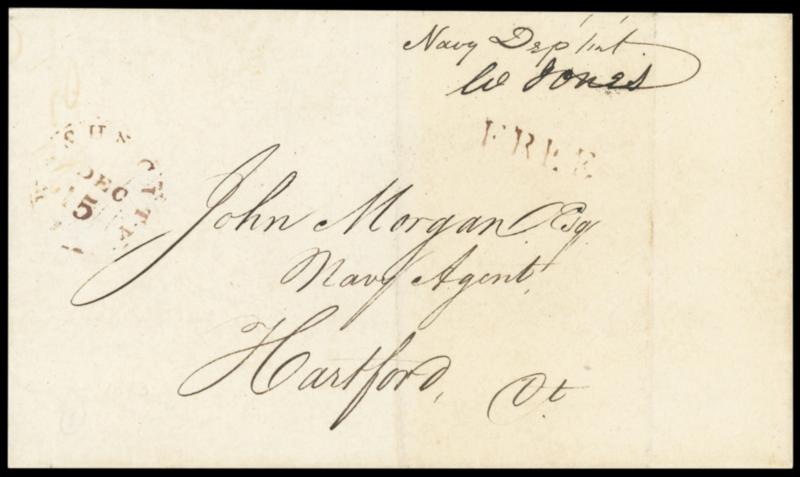 Navy Dep'mt.
W Jones
FREE
DEC
5
John Morgan Esq
Navy Agent,
Hartford, Ct.